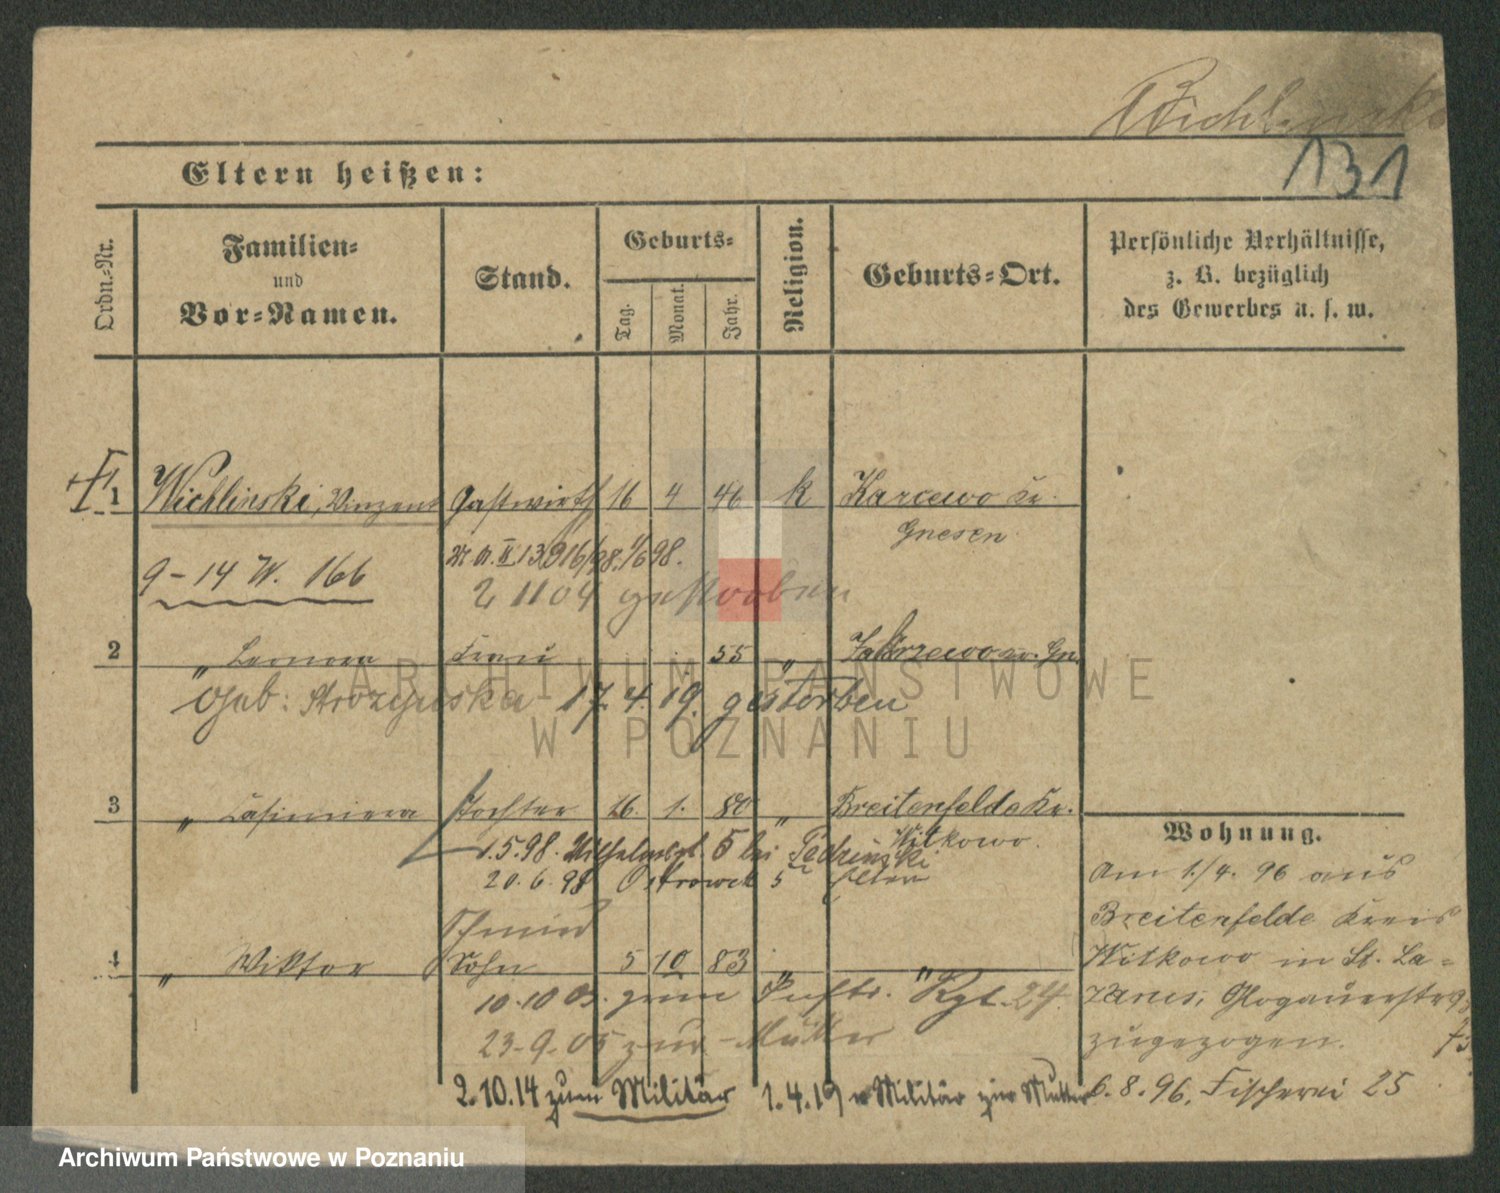 Wichlinski
131
Eltern heißen:
Ordn.-Nr.
Familien- und Vor-Namen.
Stand.
Geburts-
Tag.
Monat.
Jahr.
Religion.
Geburts-Ort.
Persönliche Verhältnisse,
z. B. bezüglich
des Gewerbes u. s. w.
1 Wichlinski, Vinzent Gastwirth 16 4 46 k Karcewo Kr.
Gnesen
9-14 W. 166
2 11 04 gestorben
2 " Leonora Frau 55 "
geb: 17. 4. 19. gestorben
ARCHIWUM PAŃSTWOWE
W POZNANIU
3 " Casimiera Tochter 26. 1. 80 " Breitenfelde Kr.
Witkowo.
1.5.98. 5 bei
20.6.98 5 Eltern
Schmied
4 " Wiktor Sohn 5 10 83 " "
10.10 03. zum Inftr. Rgt. 24.
23-9-05 zur Mutter
2.10.14 zum Militär 1.4.19 v Militär zur Mutter
Wohnung.
Am 1./4. 96 aus
Breitenfelde Kreis
Witkowo in St. La-
zarus, Glogauerstr
zugezogen.
6.8.96. Fischerei 25
Archiwum Państwowe w Poznaniu